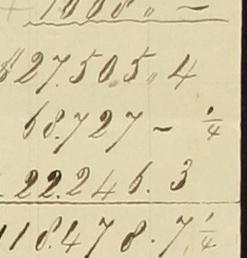 $27.50.5„ 4
68.727 – ¼
22.246. 3
118.478.7 ¼